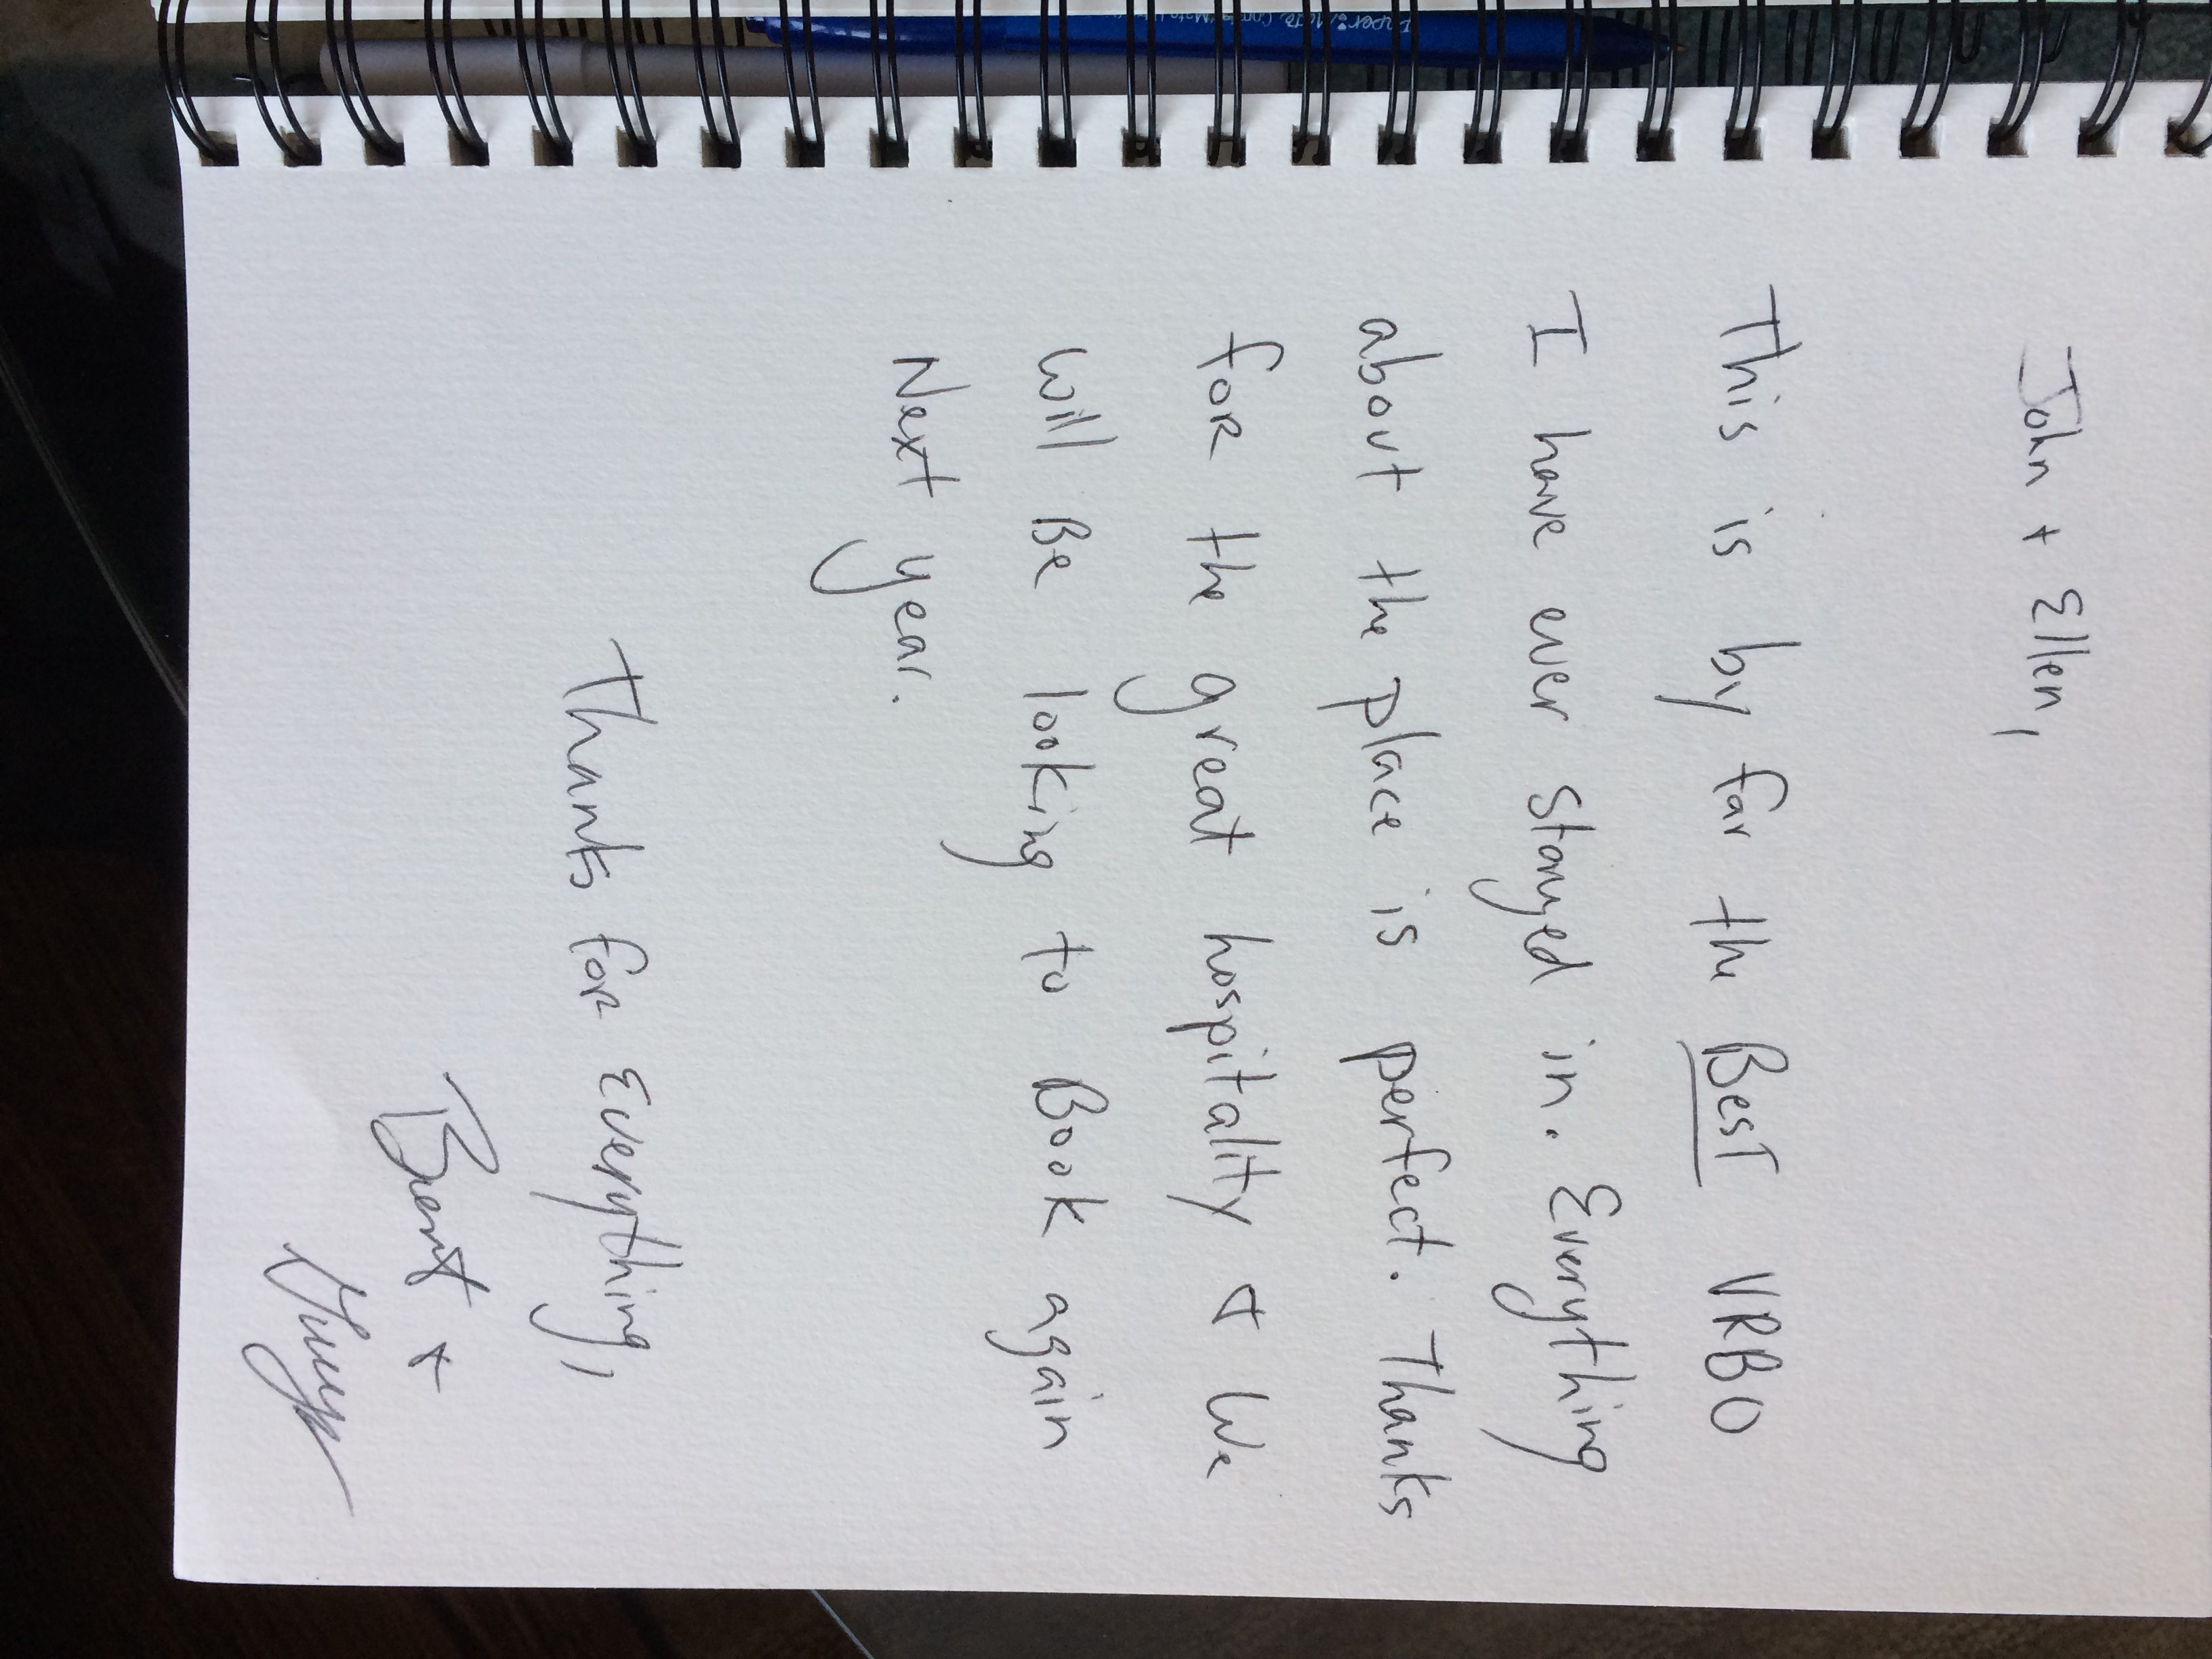 John + Ellen,
This is by far the Best VRBO
I have ever stayed in. Everything
about the place is perfect. Thanks
for the great hospitality & We
will Be looking to Book again
Next year.
Thanks for Everything,
Brent +